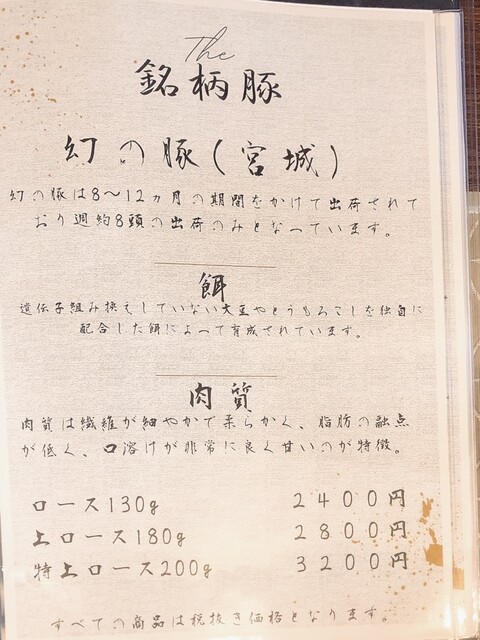 The
銘柄豚
幻の豚(宮城)
幻の豚は8～12ヵ月の期間をかけて出荷されて
おり週約8頭の出荷のみとなっています。
餌
遺伝子組み換えしていない大豆やとうもろこしを独自に
配合した餌によって育成されています。
肉質
肉質は繊維が細やかで柔らかく、脂肪の融点
が低く、口溶けが非常に良く甘いのが特徴。
ロース130g 2400円
上ロース180g 2800円
特上ロース200g 3200円
すべての商品は税抜き価格となります。